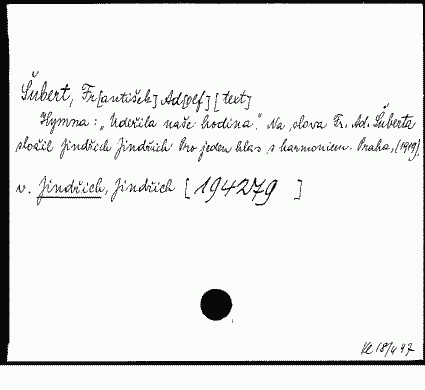 Šubert, Fr[antišek] Ad[olf] [text]
Hymna: „Udeřila naše hodina." Na slova Fr. Ad. Šuberta
složil Jindřich Jindřich Pro jeden hlas s harmoniem. Praha, [1919].
v. Jindřich, Jindřich [194279 ]